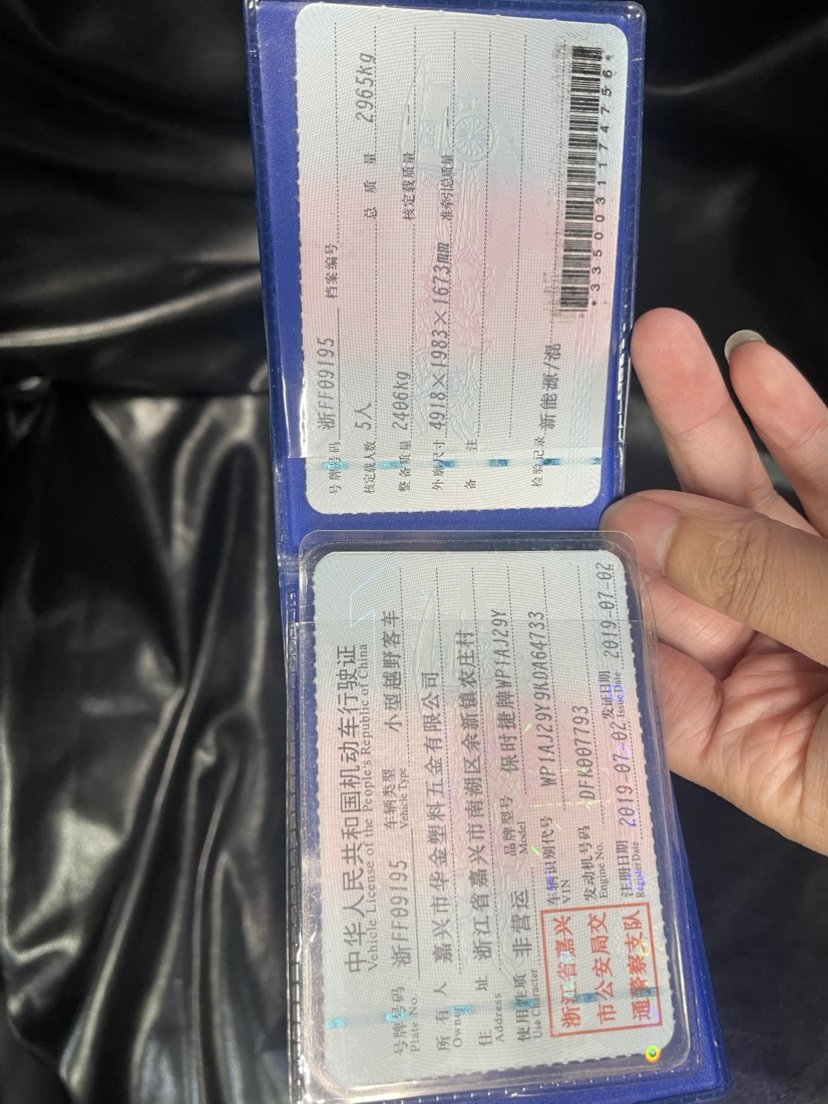 中华人民共和国机动车行驶证
Vehicle License of the People's Republic of China
号牌号码 浙FF09195 车辆类型 小型越野客车
Plate No. Vehicle Type
所有人 嘉兴市华金塑料五金有限公司
Owner
住址 浙江省嘉兴市南湖区余新镇农庄村
Address
使用性质 非营运 品牌型号 保时捷牌WP1AJ29Y
Use Character Model
浙江省嘉兴
市公安局交
通警察支队
车辆识别代号 WP1AJ29Y9KDA64733
VIN
发动机号码 DFK007793
Engine No.
注册日期 2019-07-02 发证日期 2019-07-02
Register Date Issue Date
号牌号码 浙FF09195 档案编号
核定载人数 5人 总质量 2965kg
整备质量 2406kg 核定载质量 --
外廓尺寸 4918×1983×1673mm 准牵引总质量 --
备注
检验记录 新能源/混
*3350031174756*